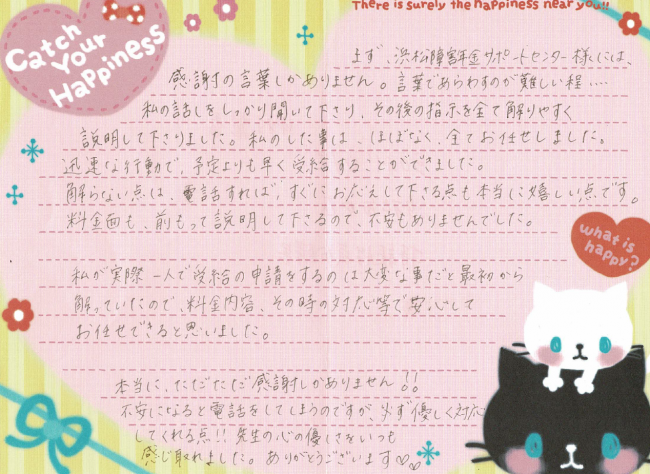 There is surely the happiness near you!!
Catch
Your
Happiness
まず、浜松障害年金サポートセンター様には、
感謝の言葉しかありません。言葉であらわすのが難しい程‥‥
私の話しをしっかり聞いて下さり、その後の指示を全て解りやすく
説明して下さりました。私のした事は、ほぼなく、全てお任せしました。
迅速な行動で、予定よりも早く受給することができました。
解らない点は、電話すれば、すぐにお応えして下さる点も本当に嬉しい点です。
料金面も、前もって説明して下さるので、不安もありませんでした。
what is
happy?
私が実際一人で受給の申請をするのは大変な事だと最初から
解っていたので、料金内容、その時の対応等で安心して
お任せできると思いました。
本当に、ただただ感謝しかありません!!
不安になると電話をしてしまうのですが、必ず優しく対応
してくれる点!!先生の心の優しさをいつも
感じ取れました。ありがとうございます♡♡